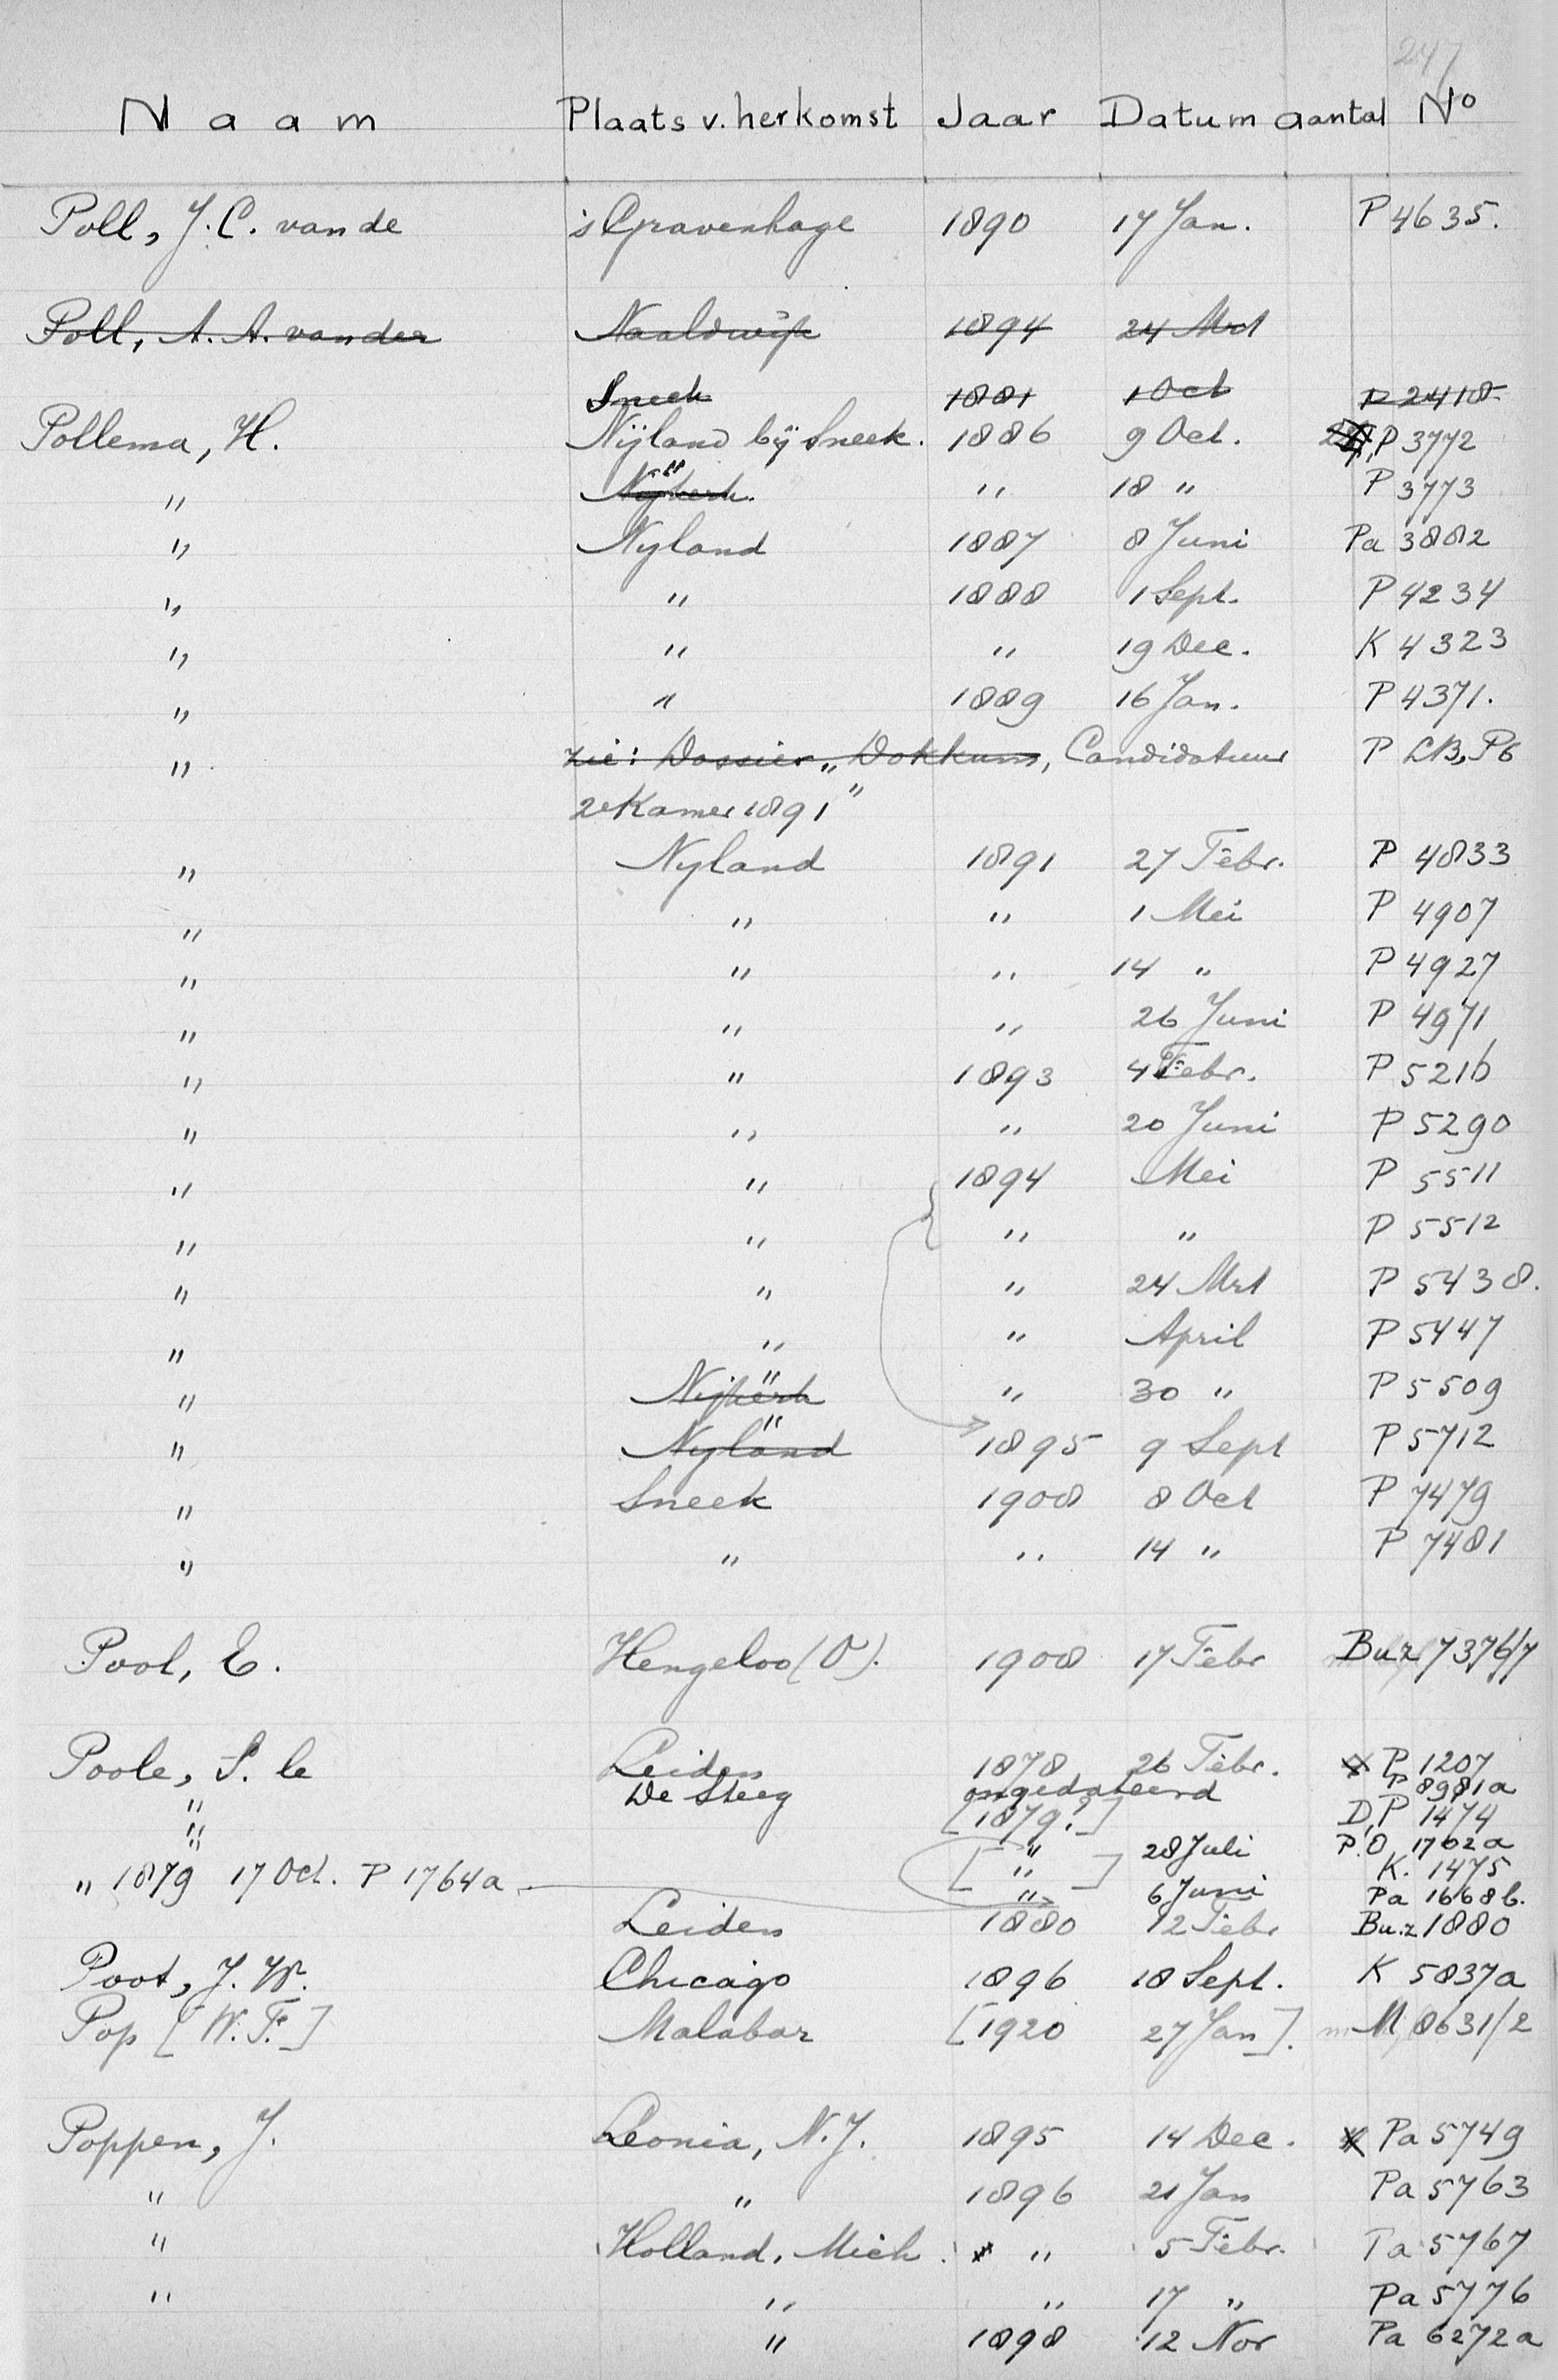 247
Naam Plaats v. herkomst Jaar Datum aantal No
Poll, J. C. van de 's Gravenhage 1890 17 Jan. P 4635.
Poll, A. A. van der Naaldwijk 1894 24 Mrt
Sneek 1881 1 Oct P 2418
Pollema, H. Nijland bij Sneek. 1886 9 Oct. P 3772
" Nijkerk " " 18 " P 3773
" Nyland 1887 8 Juni Pa 3882
" " 1888 1 Sept. P 4234
" " " 19 Dec. K 4323
" " 1889 16 Jan. P 4371.
" zie: Dossier „Dokkum, Candidatuur P LB, P6
2e Kamer 1891"
" Nyland 1891 27 Febr. P 4833
" " " 1 Mei P 4907
" " " 14 " P 4927
" " " 26 Juni P 4971
" " 1893 4 Febr. P 5216
" " " 20 Juni P 5290
" " 1894 Mei P 5511
" " " " P 5512
" " " 24 Mrt P 5438.
" " " April P 5447
" Nijkerk " " 30 " P 5509
" Nyland " 1895 9 Sept P 5712
" Sneek 1908 8 Oct P 7479
" " " 14 " P 7481
Pool, E. Hengeloo (O). 1908 17 Febr Buz 7376/7
Poole, S. le Leiden 1878 26 Febr. P 1207
" De Steeg ongedateerd P 8981a
" [1879?] D,P 1474
" " 28 Juli P.O 1762a
[ " ] K. 1475
" 1879 17 Oct. P 1764a
" 6 Juni Pa 1668b.
Leiden 1880 12 Febr Bu.z 1880
Poot, J. W. Chicago 1896 18 Sept. K 5837a
Pop [W. F.] Malabar [1920 27 Jan]. M 8631/2
Poppen, J. Leonia, N.J. 1895 14 Dec. Pa 5749
" " 1896 21 Jan Pa 5763
" Holland, Mich. " 5 Febr. Pa 5767
" " " 17 " Pa 5776
" 1898 12 Nov Pa 6272a